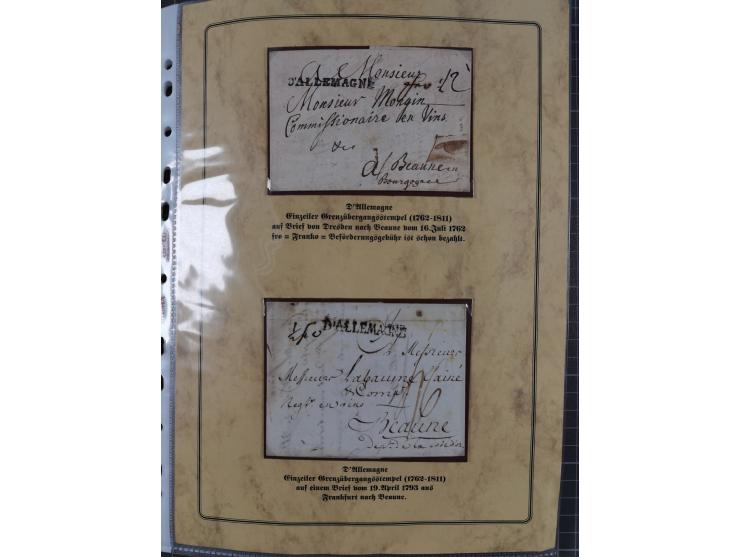 A Monsieur
D'ALLEMAGNE
fro 12
Monsieur Mongin
Commissionaire en Vins
&c
a/ Beaune en
Bourgogne
D'Allemagne
Einzeiler Grenzübergangsstempel (1762-1811)
auf Brief von Dresden nach Beaune vom 16.Juli 1762
fro = Franko = Beförderungsgebühr ist schon bezahlt.
D'ALLEMAGNE
A Messieurs
Messieurs Labaume l'ainé
& Comp
Negts en vins
Beaune
D'Allemagne
Einzeiler Grenzübergangsstempel (1762-1811)
auf einem Brief vom 19.April 1793 aus
Frankfurt nach Beaune.